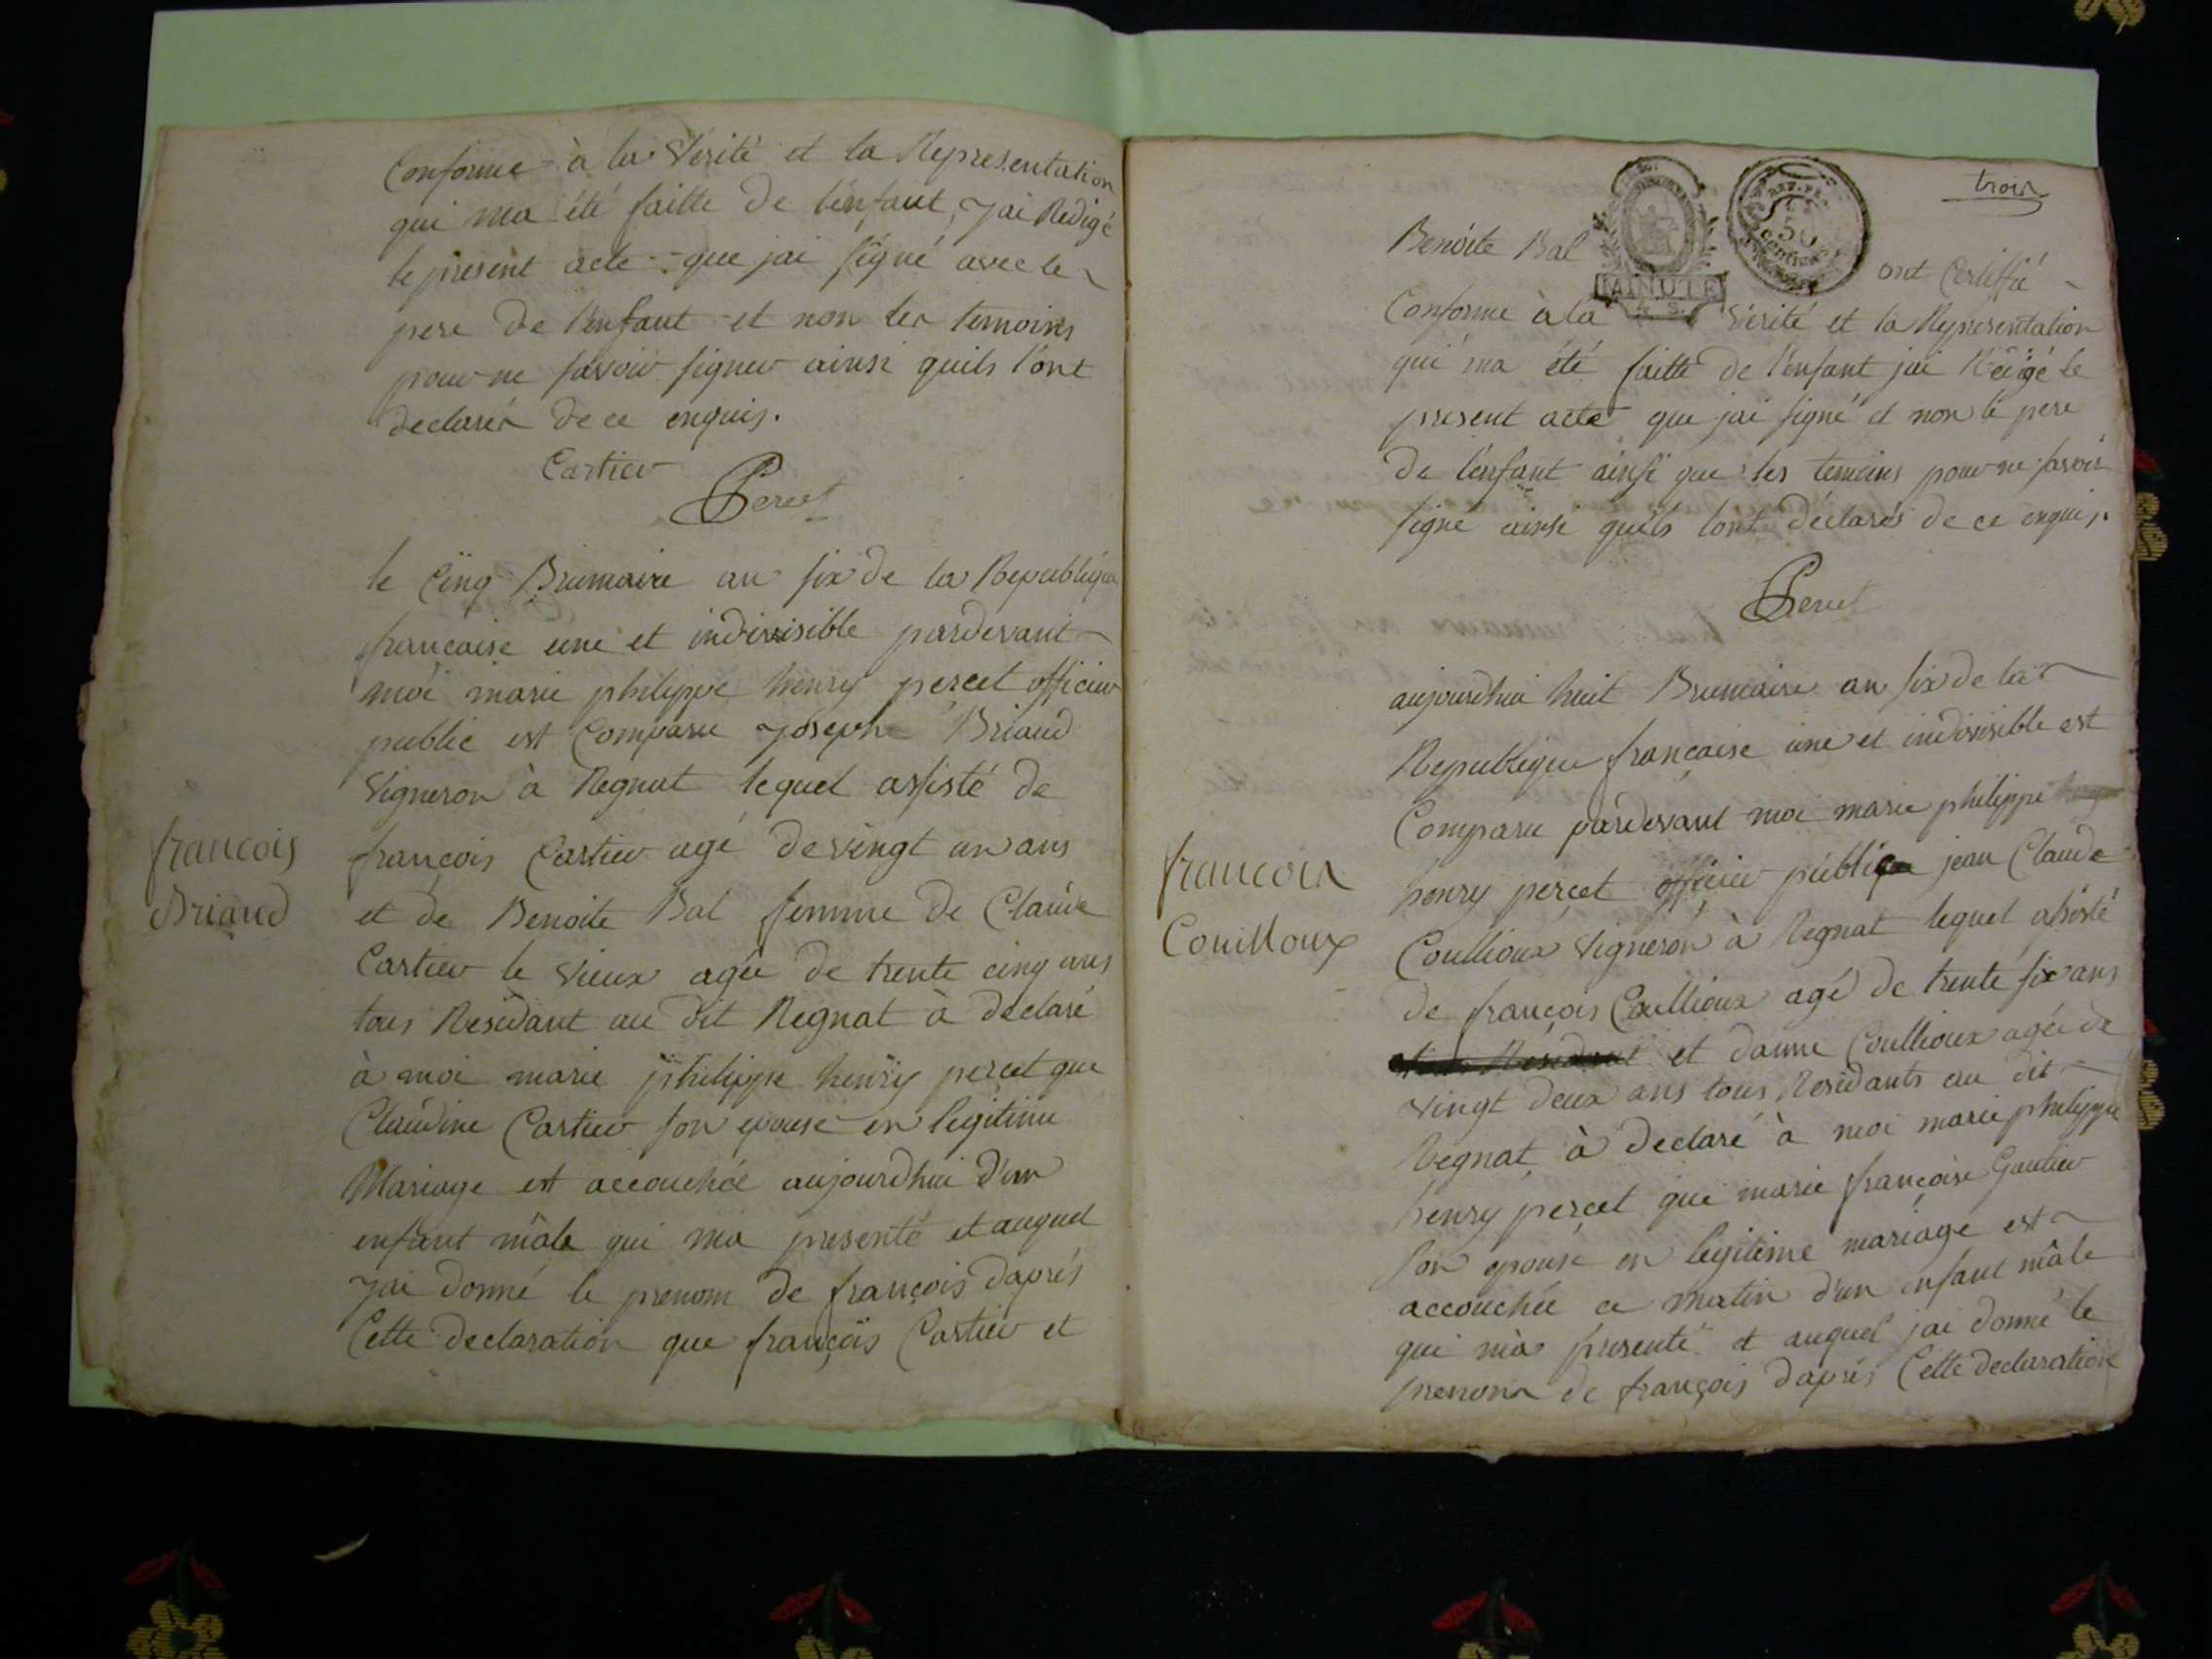 Conforme à la Verité et la Representation
qui ma été faitte de lénfant, jai Redigé
le present acte que jai signé avec le
pere de l'enfant et non les temoins
pour ne savoir signer ainsi quils l'ont
declarés de ce enquis.
Cartier
Percet
le Cinq Brumaire an six de la Republique
francaise une et indivisible pardevant
moi marie philippe henry percet officier
public est Comparu Joseph Briaud
Vigneron à Regnat lequel assisté de
françois Cartier agé de vingt un ans
et de Benoite Bal femme de Claude
Cartier le vieux agée de trente cinq ans
tous Residant au dit Regnat à declaré
à moi marie philippe henry percet que
Claudine Cartier son epouse en legitime
Mariage est accouchée aujourdhui d'un
enfant mâle qui ma presenté et auquel
jai donné le prenom de françois daprés
Cette declaration que françois Cartier et
francois
Briaud
trois
Benoite Bal ont Certiffié
MINUTE
50
Conforme à la Verité et la Representation
qui ma été faitte de l'enfant jai Redigé le
present acte que jai signé et non le pere
de lénfant ainsi que les temoins pour ne savoir
signé ainsi quils lont déclarés de ce enquis.
Percet
aujourdhui huit Brumaire an six de la
Republique francaise une et indivisible est
Comparu pardevant moi marie philippe
henry percet officier public jean Claude
Coullioux Vigneron à Regnat lequel assisté
de françois Coullioux agé de trente six ans
et Coullioux agée de
vingt deux ans tous Residants au dit
Regnat à declaré à moi marie philippe
henry percet que marie françoise Gautier
son epouse en legitime mariage est
accouchée ce matin d'un enfant mâle
qui mà presenté et auquel jai donné le
prenom de françois daprés Cette declaration
francois
Couilloux